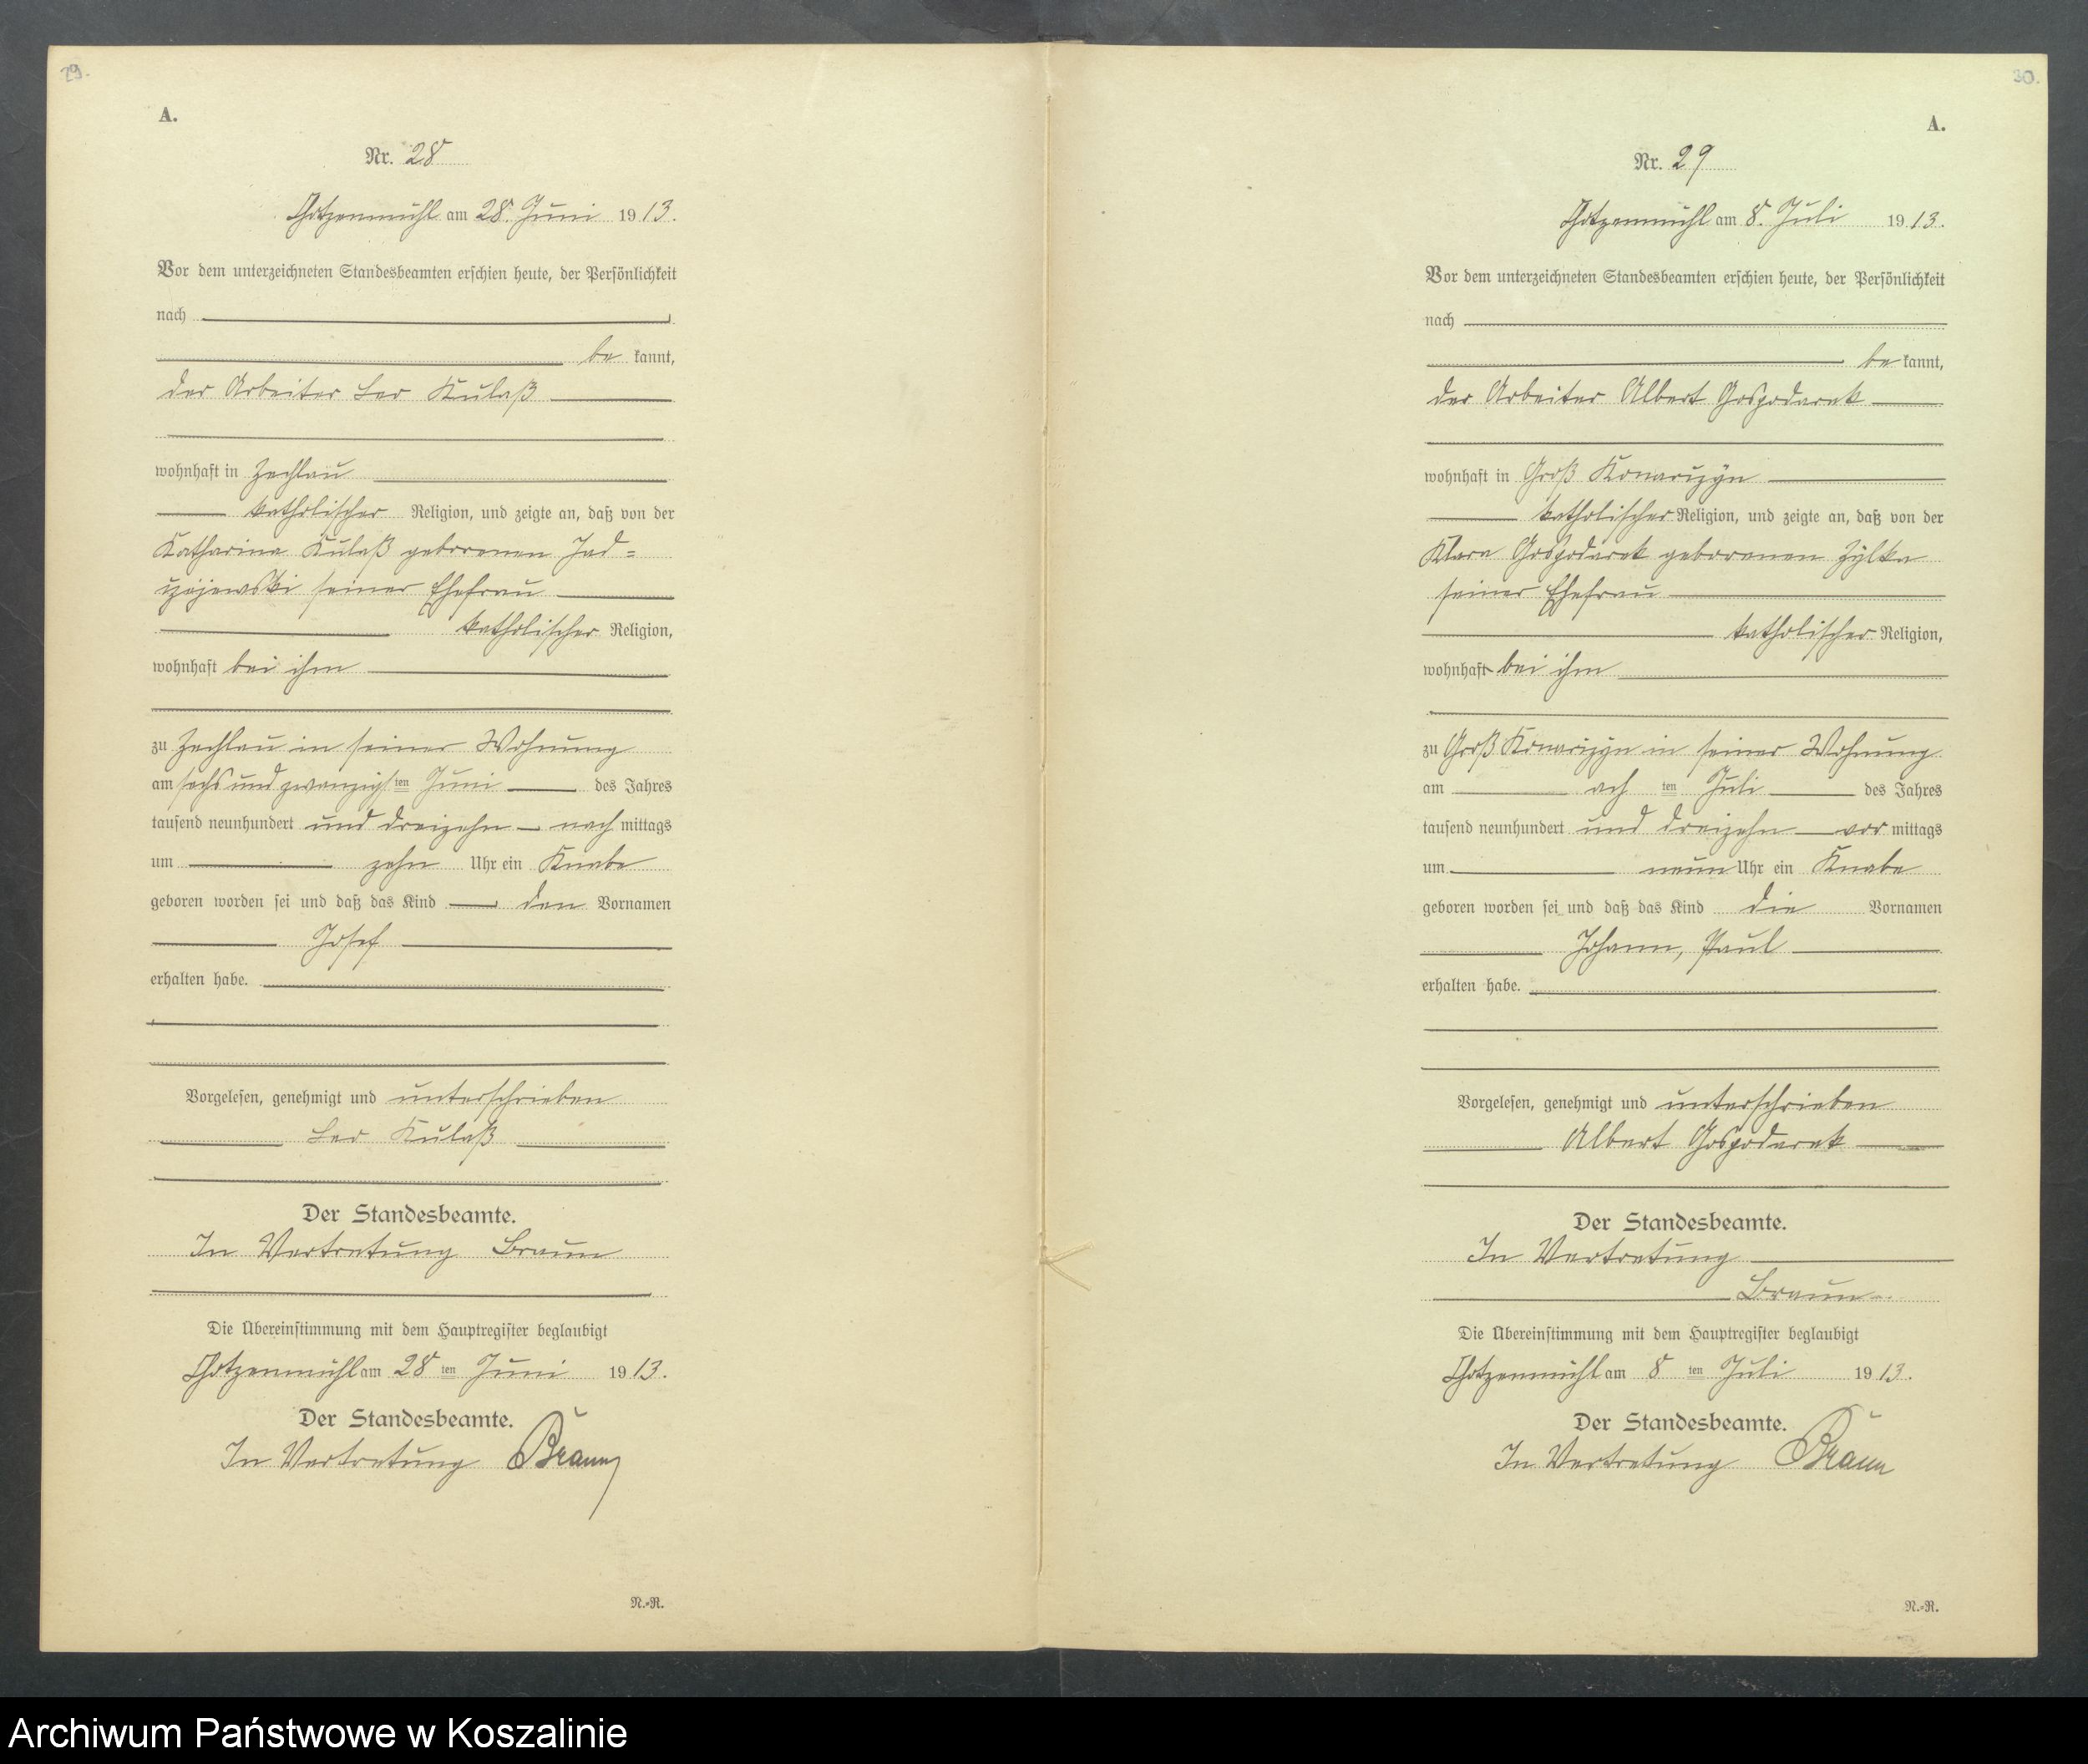 29.
A.
Nr. 28
Chotzenmühl am 28. Juni 1913.
Vor dem unterzeichneten Standesbeamten erschien heute, der Persönlichkeit
nach
be kannt,
der Arbeiter Leo Kulaß
wohnhaft in Zechlau
katholischer Religion, und zeigte an, daß von der
Katharina Kulaß geborenen Jad=
seiner Ehefrau
katholischer Religion,
wohnhaft bei ihm
zu Zechlau in seiner Wohnung
am sechs und zwanzigsten Juni des Jahres
tausend neunhundert und dreizehn nach mittags
um zehn Uhr ein Knabe
geboren worden sei und daß das Kind den Vornamen
Josef
erhalten habe.
Vorgelesen, genehmigt und unterschrieben
Leo Kulaß
Der Standesbeamte.
In Vertretung Braun
Die Übereinstimmung mit dem Hauptregister beglaubigt
Chotzenmühl am 28 ten Juni 1913.
Der Standesbeamte.
In Vertretung Braun
N.-R.
30.
A.
Nr. 29
Chotzenmühl am 8. Juli 1913.
Vor dem unterzeichneten Standesbeamten erschien heute, der Persönlichkeit
nach
be kannt,
der Arbeiter Albert Gospodarek
wohnhaft in Groß Konarczyn
katholischer Religion, und zeigte an, daß von der
Klara Gospodarek geborenen Zylka
seiner Ehefrau
katholischer Religion,
wohnhaft bei ihm
zu Groß Konarczyn in seiner Wohnung
am ach ten Juli des Jahres
tausend neunhundert und dreizehn vor mittags
um neun Uhr ein Knabe
geboren worden sei und daß das Kind die Vornamen
Johann, Paul
erhalten habe.
Vorgelesen, genehmigt und unterschrieben
Albert Gospodarek
Der Standesbeamte.
In Vertretung
Braun
Die Übereinstimmung mit dem Hauptregister beglaubigt
Chotzenmühl am 8 ten Juli 1913.
Der Standesbeamte.
In Vertretung Braun
N.-R.
Archiwum Państwowe w Koszalinie